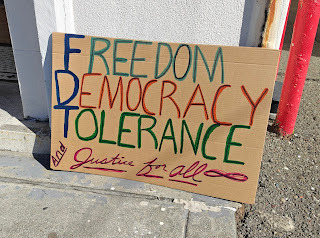 FREEDOM
DEMOCRACY
TOLERANCE
And Justice for all